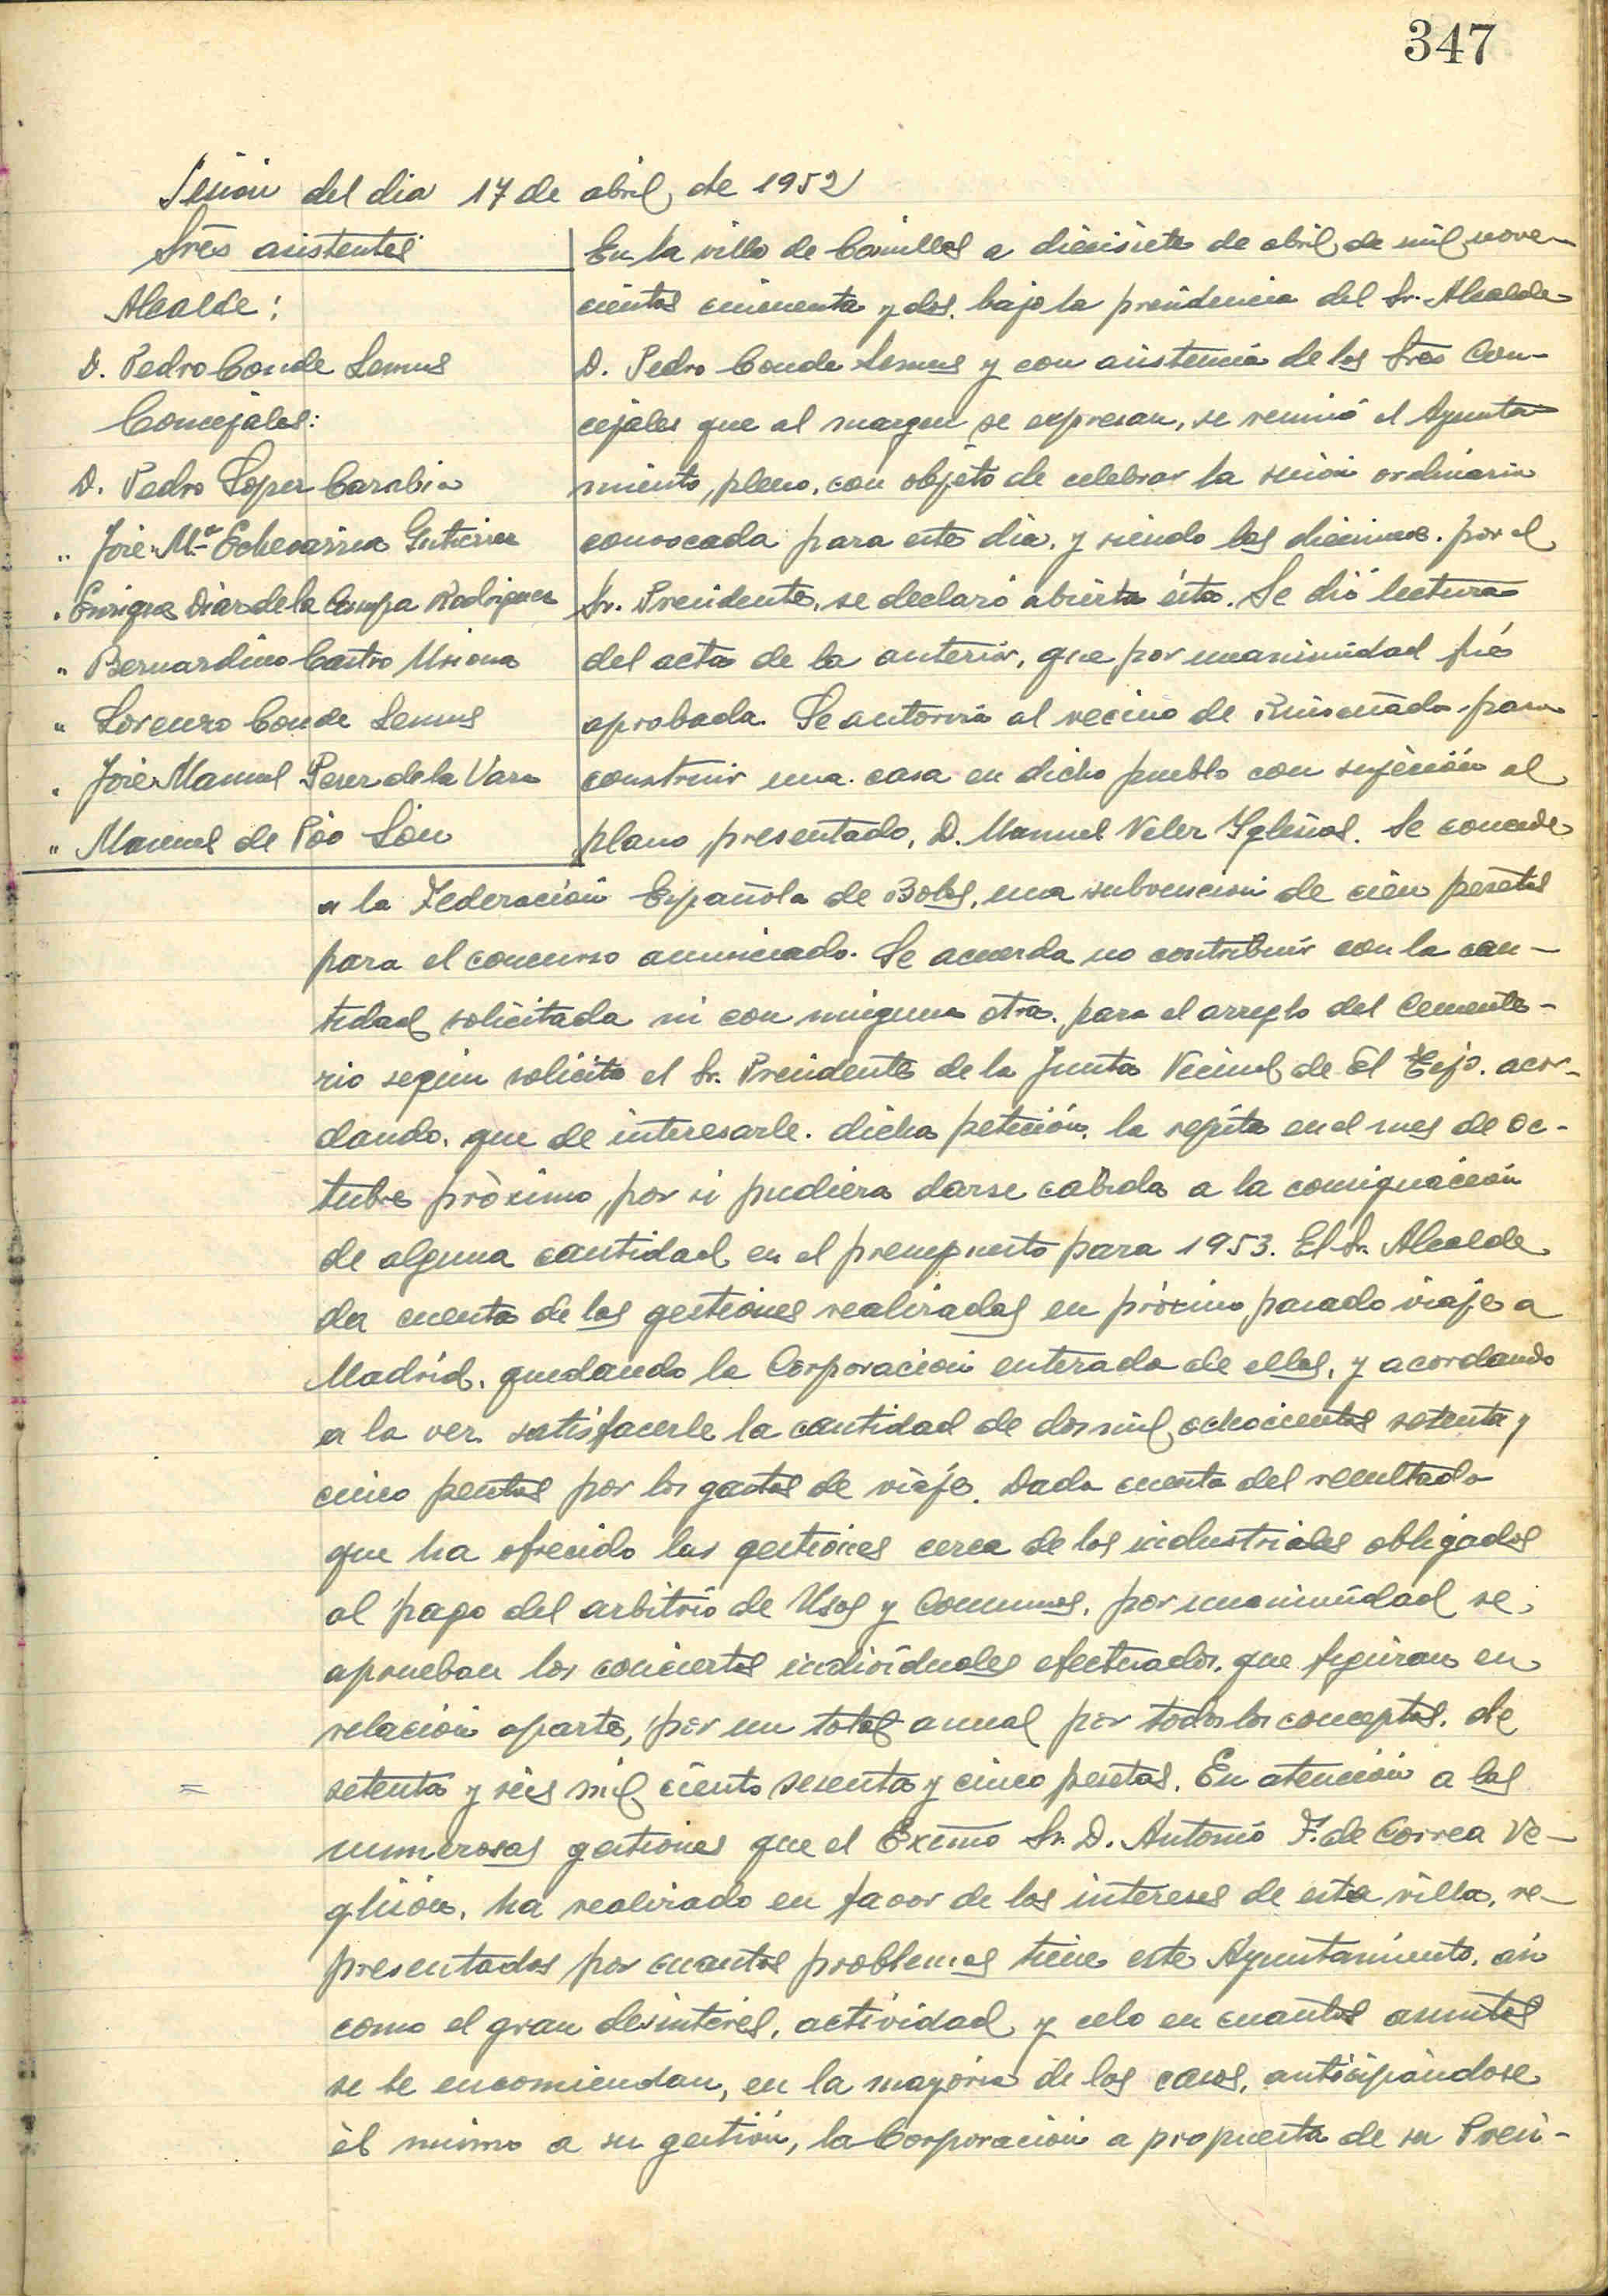 347
Sesión del dia 17 de abril de 1952
Sres asistentes
Alcalde:
D. Pedro Conde Lemus
Concejales:
D. Pedro Lopez Carabia
" José Mª Echevarria Gutierrez
" Enrique Diaz de la Campa Rodriguez
" Bernardino Castro
" Lorenzo Conde Lemus
" José Manuel Perez de la Vara
" Manuel de Poo
En la villa de Comillas a diecisiete de abril de mil nove-
cientos cincuenta y dos, bajo la presidencia del Sr. Alcalde
D. Pedro Conde Lemus y con asistencia de los Sres Con-
cejales que al margen se expresan, se reunió el Ayunta-
miento, pleno, con objeto de celebrar la sesión ordinaria
convocada para este dia, y siendo las diecinueve, por el
Sr. Presidente, se declaró abierta ésta. Se dió lectura
del acta de la anterior, que por unanimidad fué
aprobada. Se autoriza al vecino de Ruiseñada para
construir una casa en dicho pueblo con sujeción al
plano presentado, D. Manuel Velez Iglesias. Se concede
a la Federación Española de Bolos, una subvención de cien pesetas
para el concurso anunciado. Se acuerda no contribuir con la can-
tidad solicitada ni con ninguna otra, para el arreglo del Cemente-
rio según solicita el Sr. Presidente de la Junta Vecinal de El Tejo, acor-
dando, que de interesarle, dicha petición, la repita en el mes de oc-
tubre próximo, por si pudiera darse cabida a la consignación
de alguna cantidad en el presupuesto para 1953. El Sr. Alcalde
da cuenta de las gestiones realizadas en próximo pasado viaje a
Madrid, quedando la Corporación enterada de ellas, y acordando
a la vez satisfacerle la cantidad de dos mil ochocientas setenta y
cinco pesetas por los gastos de viaje. Dada cuenta del resultado
que ha ofrecido las gestiones cerca de los industriales obligados
al pago del arbitrio de Usos y Consumos, por unanimidad se
aprueban los conciertos individuales efectuados, que figuran en
relación aparte, por un total anual por todos los conceptos, de
setenta y seis mil ciento sesenta y cinco pesetas. En atención a las
numerosas gestiones que el Exmo Sr. D. Antonio F. de Correa Ve-
glisón, ha realizado en favor de los intereses de esta villa, re-
presentados por cuantos problemas tiene este Ayuntamiento, asi
como el gran desinterés, actividad y celo en cuantos asuntos
se le encomiendan, en la mayoria de los casos, anticipándose
él mismo a su gestión, la Corporación a propuesta de su Presi-